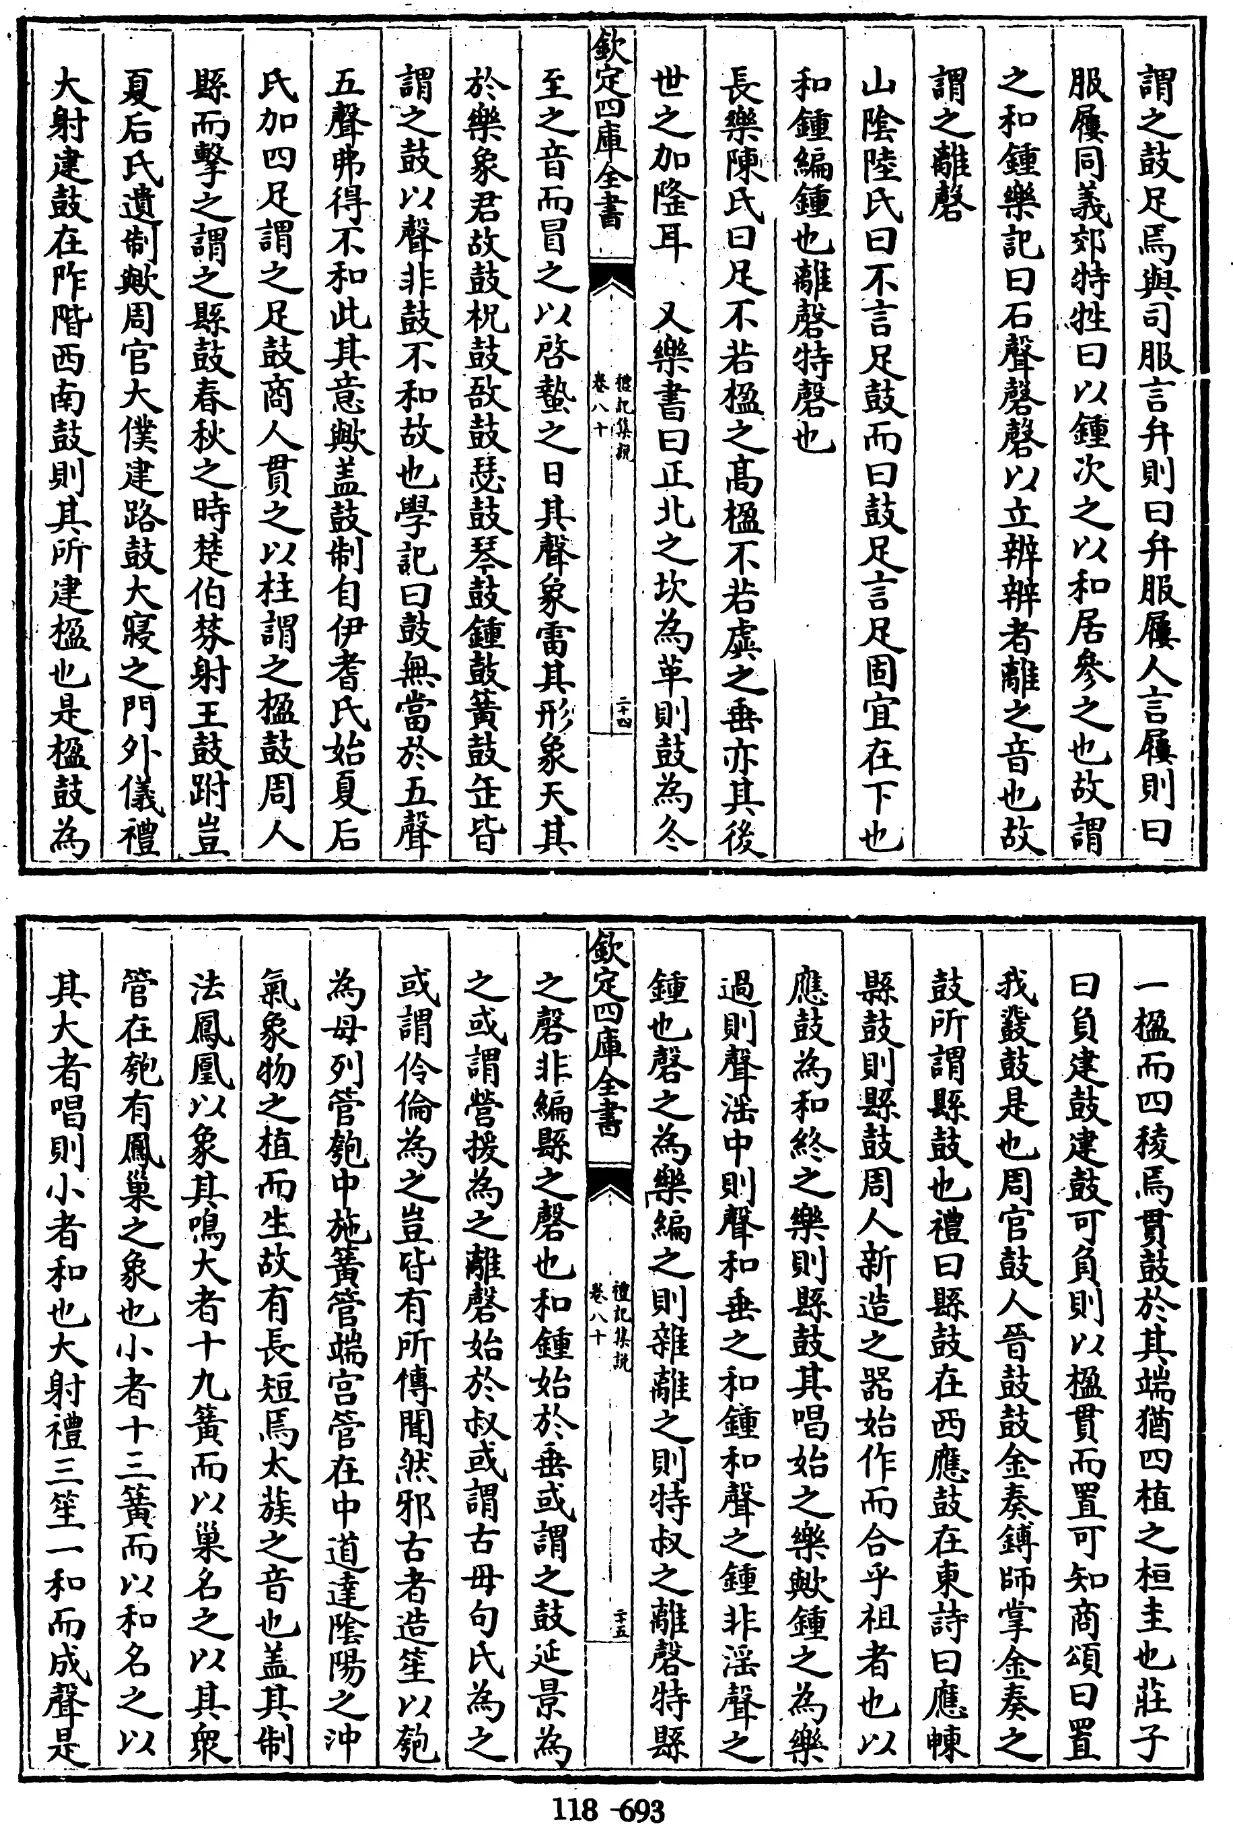 謂之鼓足焉與司服言弁則曰弁服屨人言屨則曰
服屨同義郊特牲曰以鍾次之以和居參之也故謂
之和鍾樂記曰石聲磬磬以立辨辨者離之音也故
謂之離磬
山陰陸氏曰不言足鼓而曰鼓足言足固宜在下也
和鍾編鍾也離磬特磬也
長樂陳氏曰足不若楹之髙楹不若虡之垂亦其後
世之加隆耳 又樂書曰正北之坎為革則鼓為冬
欽定四庫全書
禮記集説
卷八十
二十四
至之音而冒之以啓蟄之日其聲象雷其形象天其
於樂象君故鼓柷鼓敔鼓瑟鼓琴鼓鍾鼓簧鼓缶皆
謂之鼓以聲非鼓不和故也學記曰鼓無當於五聲
五聲弗得不和此其意歟盖鼓制自伊耆氏始夏后
氏加四足謂之足鼓商人貫之以柱謂之楹鼓周人
縣而擊之謂之縣鼓春秋之時楚伯棼射王鼓跗豈
夏后氏遺制歟周官大僕建路鼓大寢之門外儀禮
大射建鼓在阼階西南鼓則其所建楹也是楹鼓為
一楹而四稜焉貫鼓於其端猶四植之桓圭也莊子
曰負建鼓建鼓可負則以楹貫而置可知商頌曰置
我鼗鼓是也周官鼓人晉鼓鼓金奏鎛師掌金奏之
鼓所謂縣鼓也禮曰縣鼓在西應鼓在東詩曰應朄
縣鼓則縣鼓周人新造之器始作而合乎祖者也以
應鼓為和終之樂則縣鼓其唱始之樂歟鍾之為樂
過則聲滛中則聲和垂之和鍾和聲之鍾非滛聲之
鍾也磬之為樂編之則雜離之則特叔之離磬特縣
欽定四庫全書
禮記集説
卷八十
二十五
之磬非編縣之磬也和鍾始於垂或謂之鼓延景為
之或謂營援為之離磬始於叔或謂古毋句氏為之
或謂伶倫為之豈皆有所傳聞然邪古者造笙以匏
為母列管匏中施簧管端宫管在中道達隂陽之沖
氣象物之植而生故有長短焉太蔟之音也盖其制
法鳳凰以象其鳴大者十九簧而以巢名之以其衆
管在匏有鳳巢之象也小者十三簧而以和名之以
其大者唱則小者和也大射禮三笙一和而成聲是
118-693